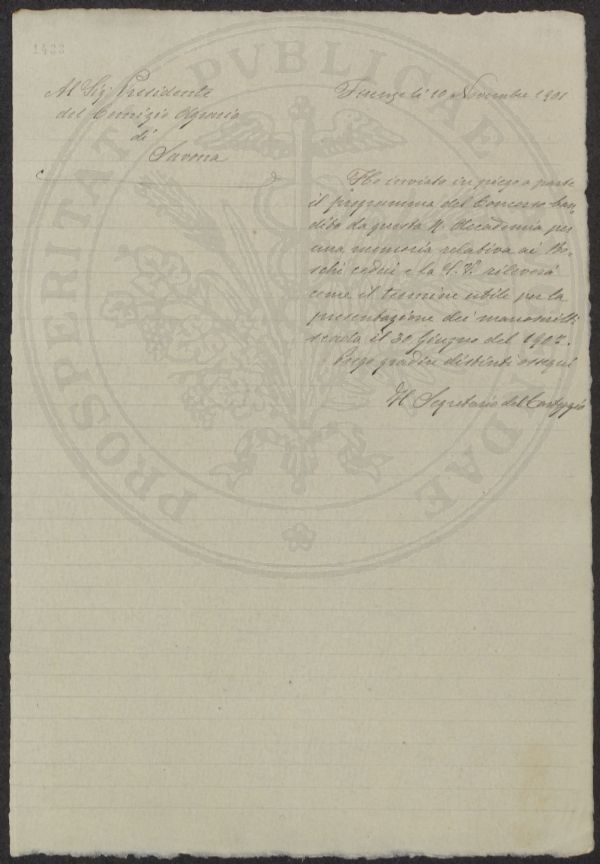 1423
Al Sig. Presidente
del Comizio Agrario
di
Savona
Firenze li 10 Novembre 1901
Ho inviato in piego a parte
il programma del Concorso ban-
dito da questa R. Accademia per
una memoria relativa ai Bo-
schi cedui e la S. V. rileverà
come il termine utile per la
presentazione dei manoscritti
scada il 30 Giugno del 1902.
gradire distinti ossequi
Il Segretario del Carteggio
PROSPERITATI PUBLICAE AUGENDAE